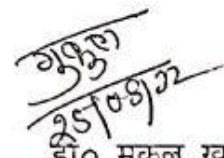 मुकुल
25/05/22
डॉ० मुकुल